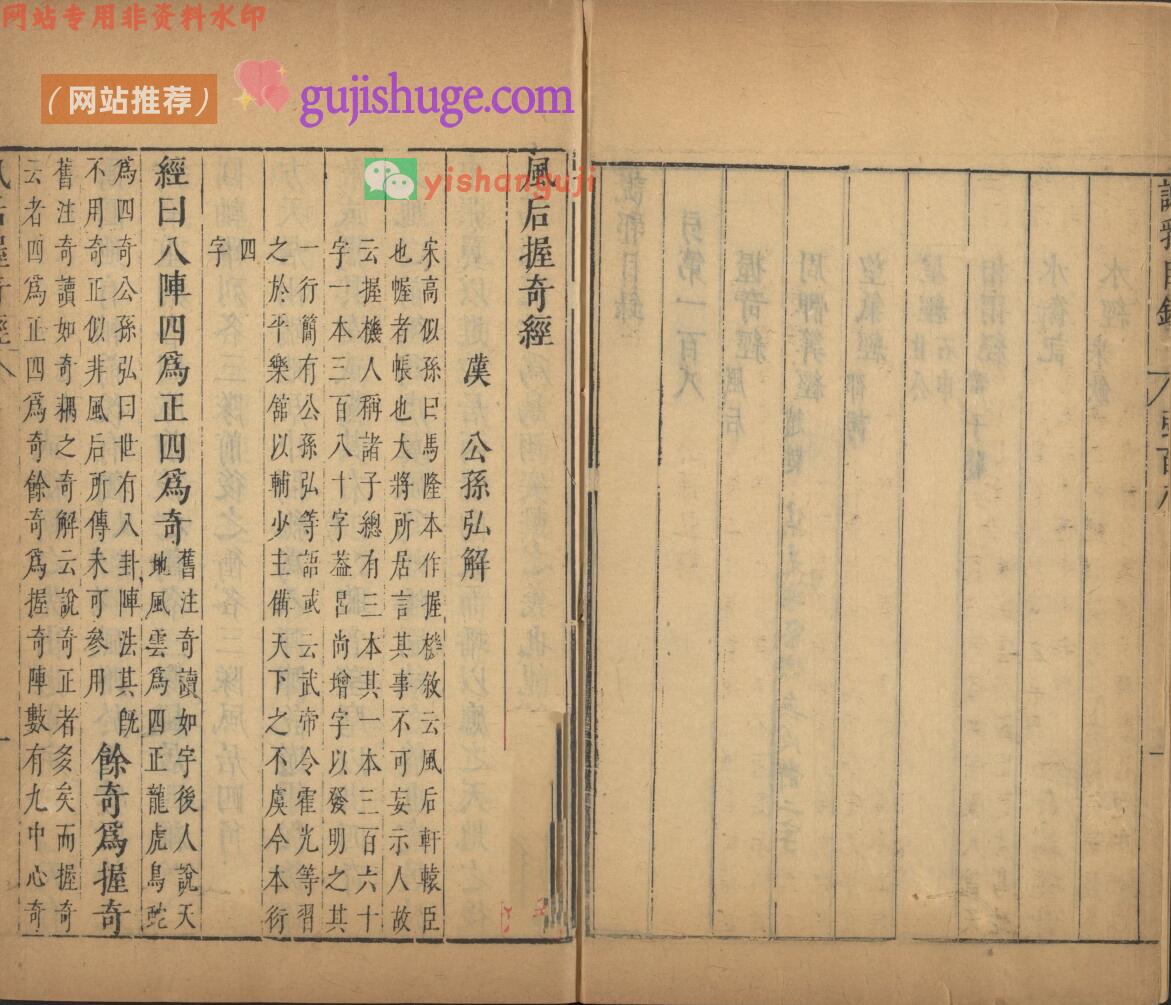 网站专用非资料水印
（网站推荐）
gujishuge.com
yishanguji
風后握奇經
漢 公孫弘解
宋高似孫曰馬隆本作握機敘云風后軒轅臣
也幄者帳也大將所居言其事不可妄示人故
云握機人稱諸子總有三本其一本三百六十
字一本三百八十字葢呂尚增字以發明之其
一行簡有公孫弘等語或云武帝令霍光等習
之於平樂舘以輔少主備天下之不虞今本衍
四
字
經曰八陣四爲正四爲奇
舊注奇讀如字後人說天
地風雲爲四正龍虎鳥蛇
爲四奇公孫弘曰世有八卦陣法其旣
不用奇正似非風后所傳未可參用
餘奇爲握奇
舊注奇讀如奇耦之奇解云說奇正者多矣而握奇
云者四爲正四爲奇餘奇爲握奇陣數有九中心奇